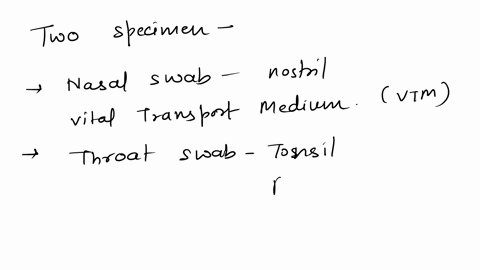 Two specimen -
→ Nasal swab - nostril
vital Transport Medium. (VTM)
→ Throat swab - Tosnsil